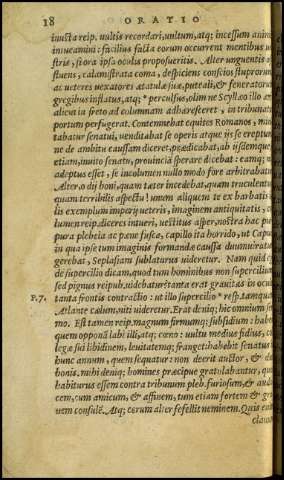 18 ORATIO
inuicta reip. uultis recordari, uultum, atq; incessum animis
intueamini: facilius facta eorum occurrent mentibus ue
stris, si ora ipsa oculis proposueritis. Alter unguentis af
fluens, calamistrata coma, despiciens conscios stuprorum,
ac ueteres uexatores ætatulæ suæ, puteali, & feneratorum
gregibus inflatus, atq; * percussus, olim ne Scyllæo illo æris
alieni in freto ad columnam adhæresceret, in tribunatus
portum perfugerat. Contemnebat equites Romanos, mini
tabatur senatui, uenditabat se operis atque ijs se ereptum
ne de ambitu caussam diceret, prædicabat, ab ijsdemque
etiam, inuito senatu, prouinciã sperare dicebat: eamq; nisi
adeptus esset, se incolumem nullo modo fore arbitrabatur.
Alter, o dij boni, quam tæter incedebat, quam truculentus,
quam terribilis aspectu! unum aliquem te ex barbatis il
lis exemplum imperij ueteris, imaginem antiquitatis, co
lumen reip. diceres intueri, uestitus asper, nostra hac pur
pura plebeia ac pæne fusca, capillo ita horrido, ut Capua,
in qua ipse tum imaginis formandæ caussa duumuiratum
gerebat, Seplasiam sublaturus uideretur. Nam quid ego
de supercilio dicam, quod tum hominibus non supercilium,
sed pignus reipub. uidebatur? tanta erat grauitas in oculo,
P. 7. tanta frontis contractio: ut illo supercilio * resp. tamquam
Atlante cælum, niti uideretur. Erat deniq; hic omnium ser
mo. Est tamen reip. magnum firmumq; subsidium: habeo
quem opponã labi illi, atq; cœno: uultu medius fidius, col
legæ sui libidinem, leuitatemq; franget: habebit senatus in
hunc annum, quem sequatur: non deerit auctor, & dux
bonis. mihi deniq; homines præcipue gratulabantur, quod
habiturus essem contra tribunum pleb. furiosum, & auda
cem, cum amicum, & affinem, tum etiam fortem & gra
uem consulẽ. Atq; eorum alter fefellit neminem. Quis enim
clauum